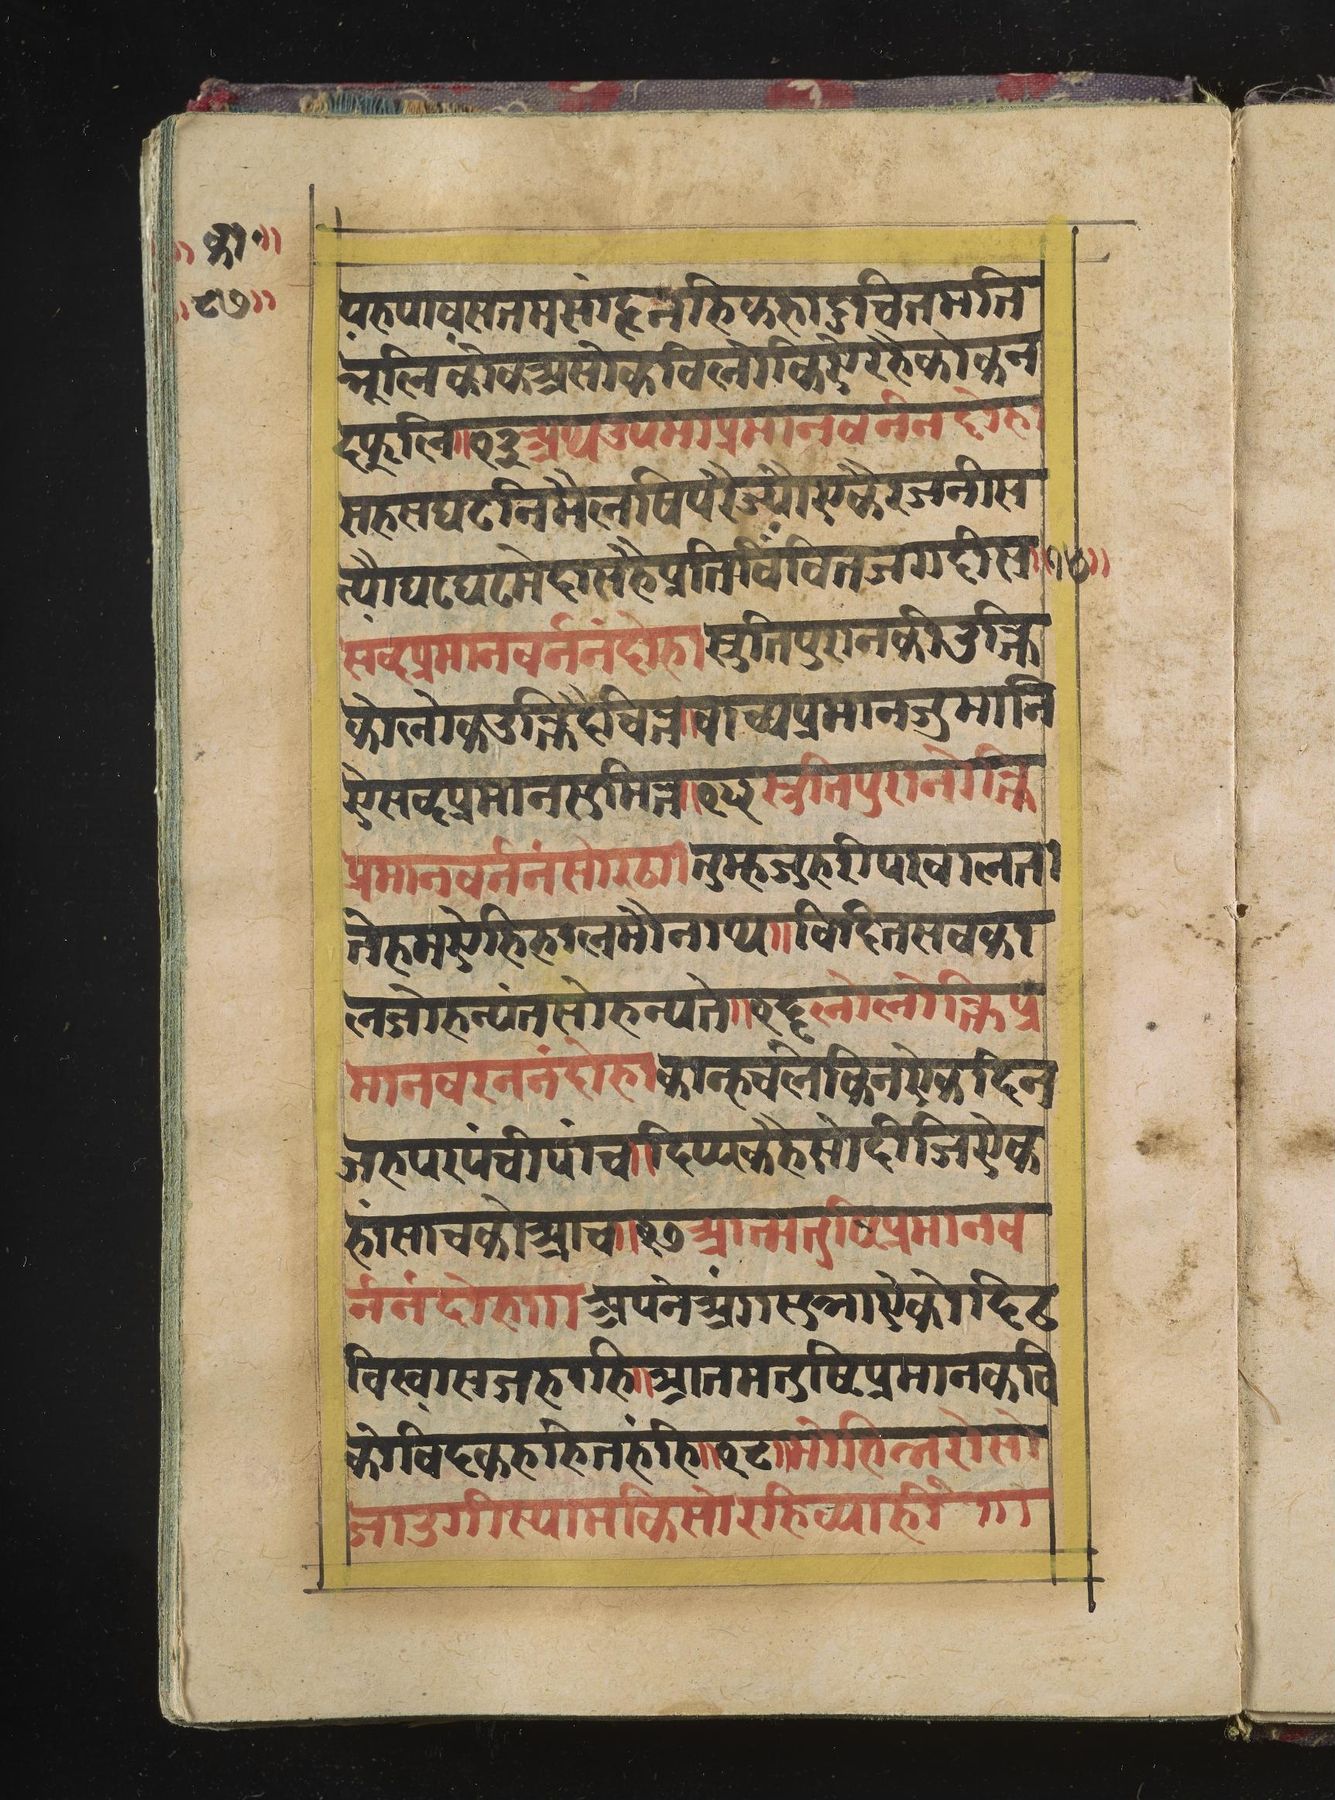 ॥का॰॥
॥८७॥
यहपावसतमसांझनहिकहादुचितमति
भूलिकोकअसोकविलोकिऐरहेकोकन
दफूलि॥१३अथउपमाप्रमानवर्ननदोहा
सहसघटनिमैलषिपरैज्यौएकैरजनीस
त्यौघटघटमेदासहैप्रतिविंवितजगदीस॥१४॥
संब्दप्रमानवर्ननंदोहा।स्रुतिपुरानकीउक्ति
कोलोकउक्तिदैवित्त॥वाच्यप्रमानजुमानि
ऐसब्दप्रमानसुमित्त॥१५स्रुतिपुरानोक्ति
प्रमानवर्ननंसोरठा।तुम्हजुहरीपरवालता
तेहमऐहिहालमौनाथ॥विदितसवका
लजोहन्यंतसोहन्यते॥१६लोलोक्तिप्र
मानवरननंदोहा।कान्हचलेकिनऐकदिन
जहपरपंचीपांच॥दिप्पकहैसोदीजिऐक
हांसाचकोआच॥१७आत्मतुष्टिप्रमानव
र्ननंदोहा॥अपनेअंगसुभाऐकोदिढ
विस्वासजहाहि॥आतमतुष्टिप्रमानकवि
कोविदकहहितहांहि॥१८॥मोहिभरोसो
जाउगीस्यामकिसोरहिव्याही॥।